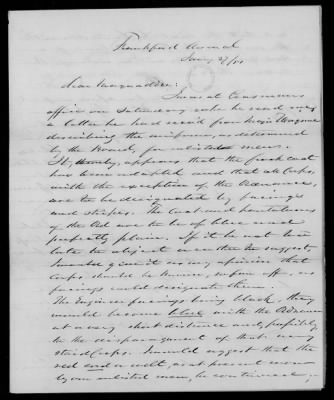 Frankford Arsenal
Jany 27/51
Dear Maynadier:
I was at
office on Saturday, when he read me
a letter he had rec'd from Major
describing the uniform, as determined
by the Board, for enlisted men.
It, thereby, appears that the frock coat
has been adopted and that all Corps,
with the exception of the Ordnance,
are to be designated by facings
and stripes. The coat and pantaloons
of the Ord are to be of blue and
perfectly plain. If it be not too
late to object I
I would give it as my opinion that
Corps should be known, as far off, as
facings could designate them.
The Engineer facings being black, they
would become blue with the Ordnance
at a very short distance and,
to the disparagement of that
Corps. I would suggest that the
red and welt, as at present worn
by our enlisted men, be continued,